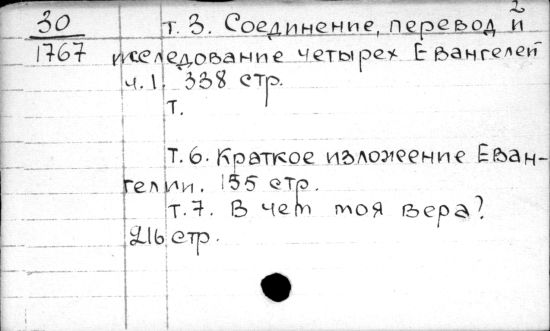 2
30 т. 3. Соединение, перевод и
1767 исследование четырех Евангелей
ч. 1. 338 стр.
т.
т. 6. Краткое изложение Еван-
гелии. 155 стр.
т. 7. В чем моя вера?
216 стр.